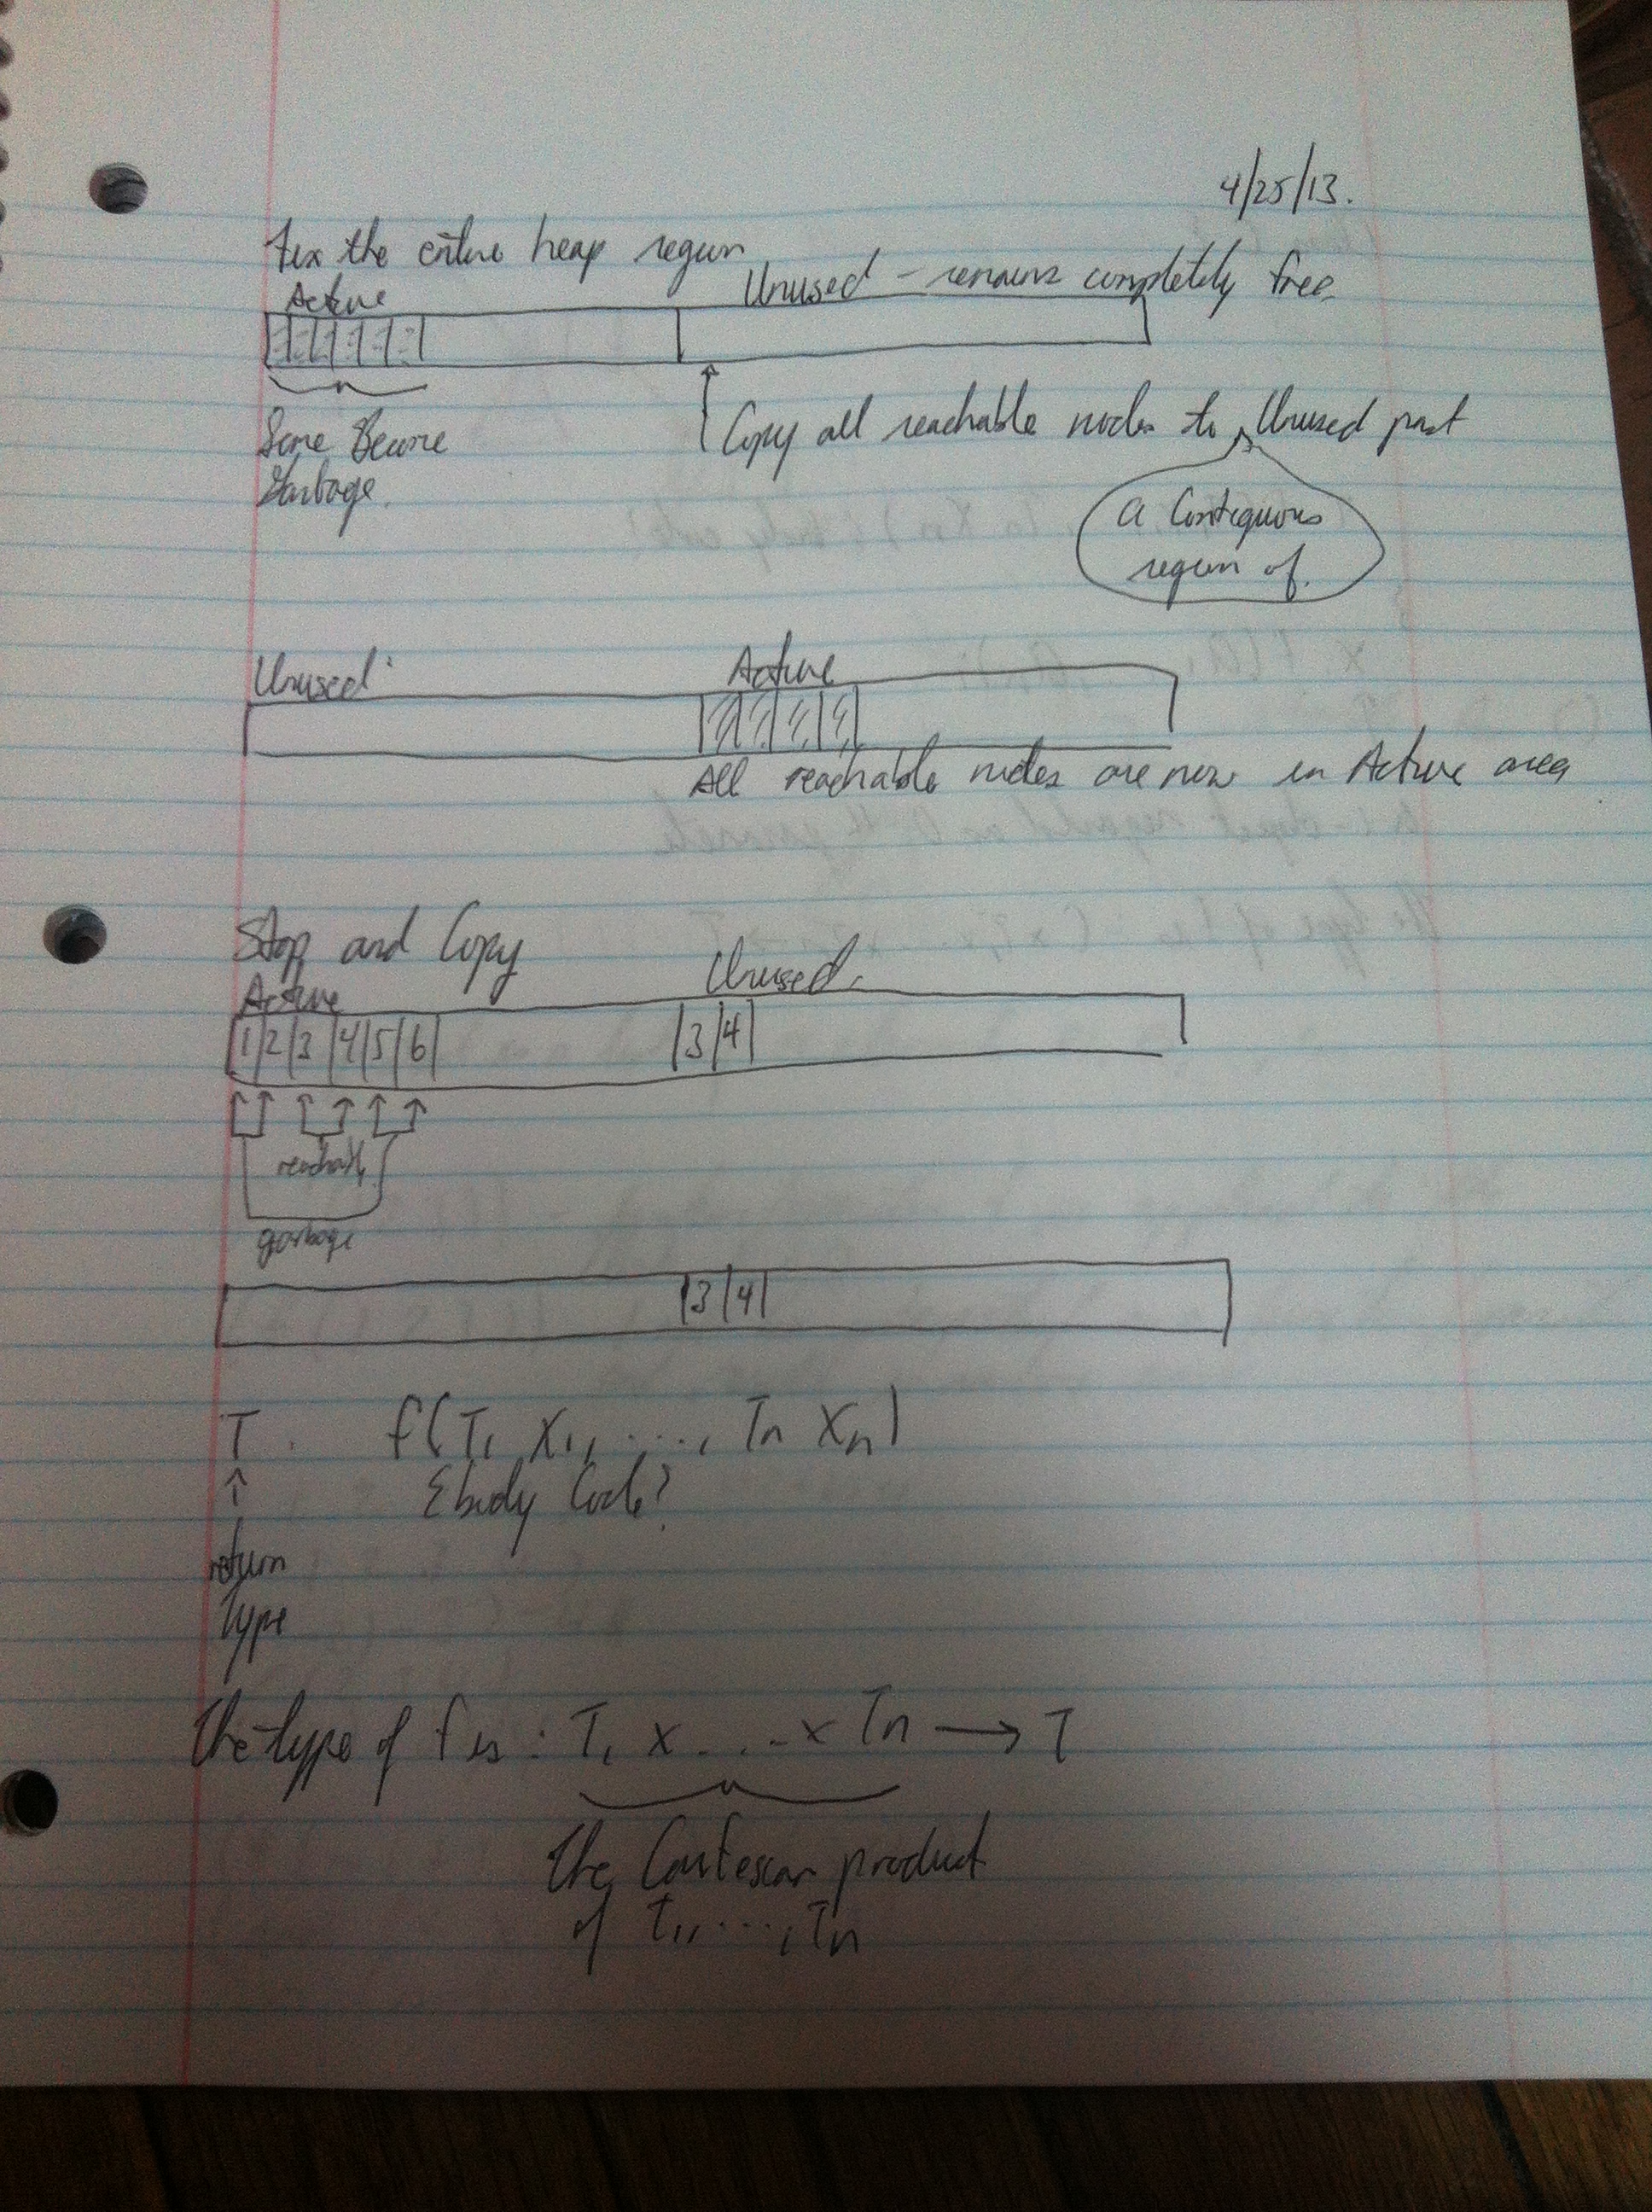 4/25/13.
Fix the entire heap region
Active
Unused - remains completely free.
Some Become
Garbage.
Copy all reachable nodes to Unused part
a Contiguous
region of.
Unused
Active
All reachable nodes are now in Active area
Stop and Copy
Active
Unused
1 2 3 4 5 6
3 4
reachable
garbage
3 4
T f(T1 X1, ..., Tn Xn)
{body Code}
return
Type
The type of f is: T1 x ... x Tn → T
The Cartesian product
of T1, ..., Tn